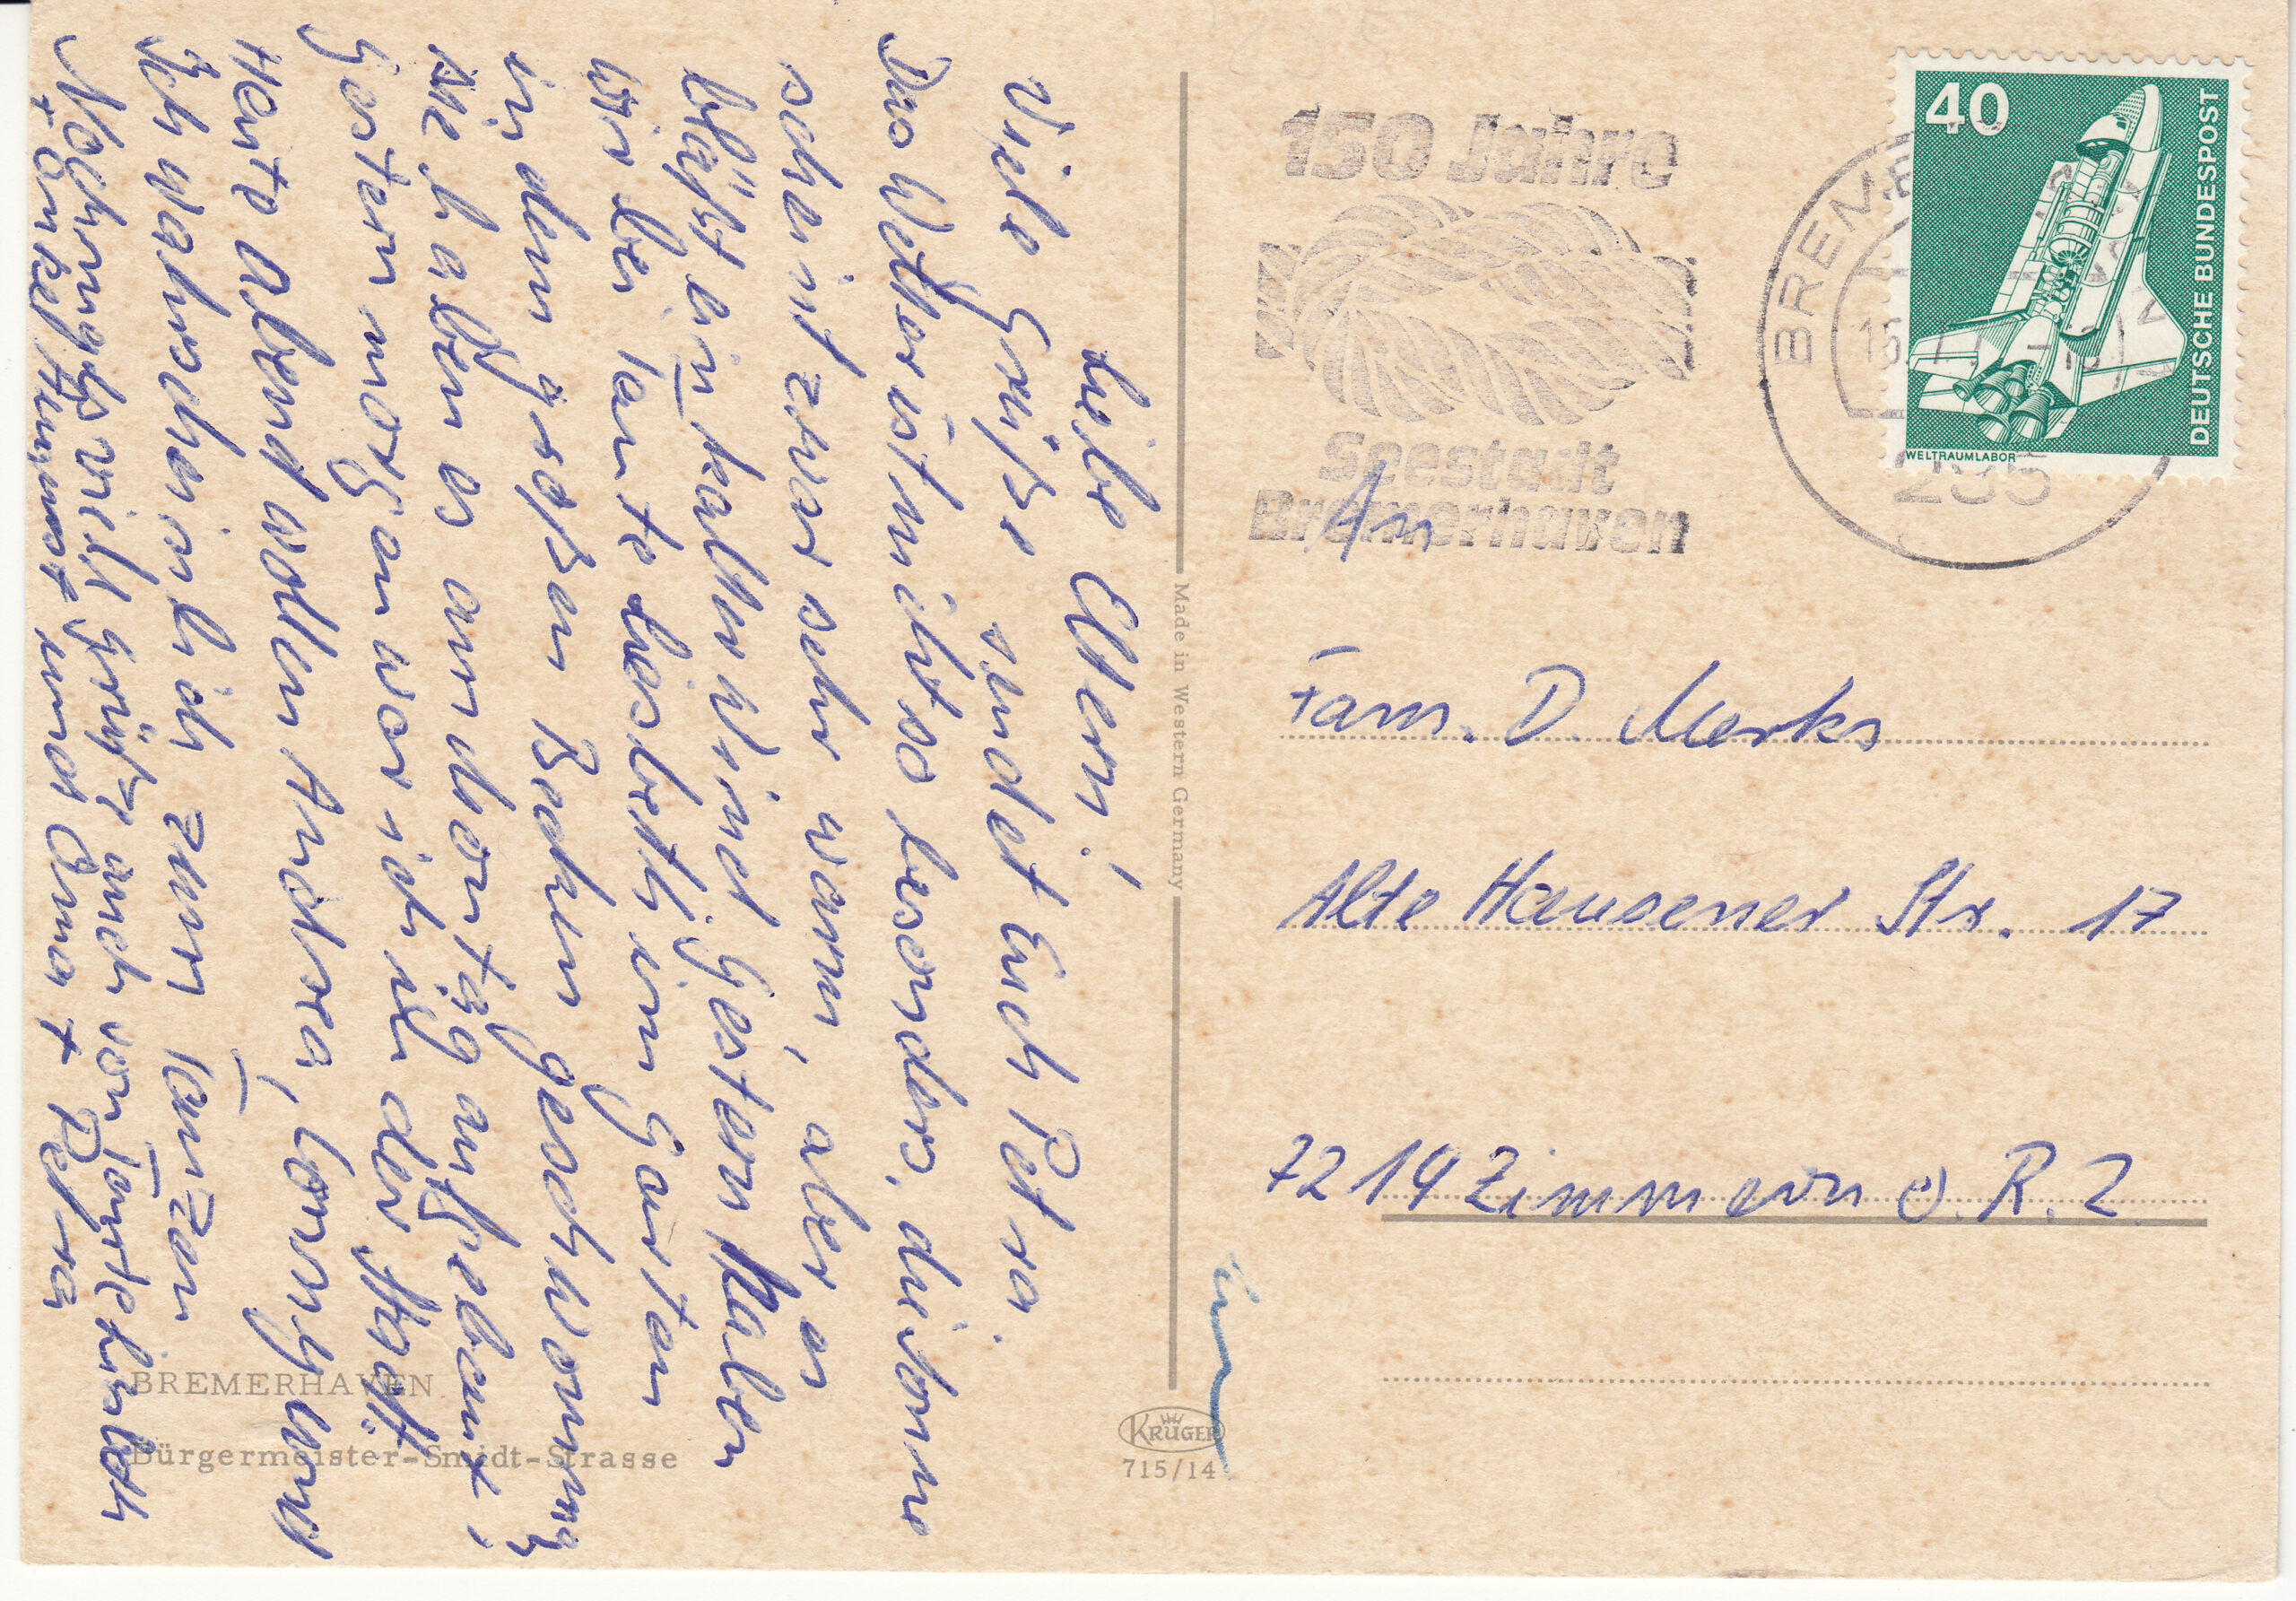 Liebe Eltern!
Viele Grüße sendet Euch Petra.
Das Wetter ist nicht so besonders, die Sonne
scheint zwar sehr warm, aber es
bläßt ein kalter Wind. Gestern haben
wir bei Tante Liesbeth im Garten
in dem großen Becken geschwommen,
sie haben es am dort aufgebaut,
Gestern morgen war ich in der Stadt.
Heute Abend wollen Andrea, Conny und
ich wahrscheinlich zum Tanzen
Nochmals viele Grüße auch von Tante Lisbeth
+ Onkel und Oma + Petra
BREMERHAVEN
Bürgermeister-Smidt-Strasse
Made in Western Germany
KRÜGER
715/14
150 Jahre
Seestadt
Bremerhaven
BREM
285
40
DEUTSCHE BUNDESPOST
WELTRAUMLABOR
An
Fam. D. Merks
Alte Hausener Str. 17
7219 Zimmern o. R. 2